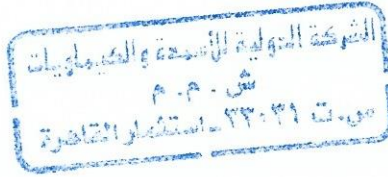 الشركة الدولية للأسمدة والكيماويات
ش . م . م
س.ت ٢٣٠٣١ ـ استثمار القاهرة